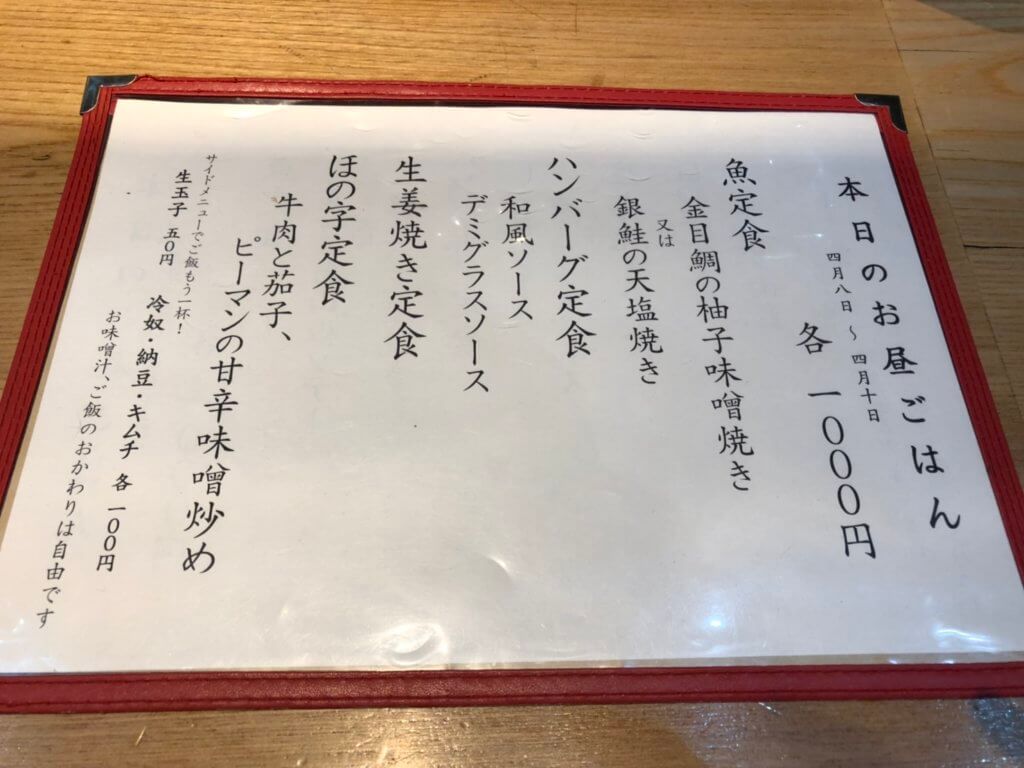 本日のお昼ごはん
四月八日 ～ 四月十日
各 一〇〇〇円
魚定食
金目鯛の柚子味噌焼き
又は
銀鮭の天塩焼き
ハンバーグ定食
和風ソース
デミグラスソース
生姜焼き定食
ほの字定食
牛肉と茄子、
ピーマンの甘辛味噌炒め
サイドメニューでご飯もう一杯！
生玉子 五〇円
冷奴・納豆・キムチ 各 一〇〇円
お味噌汁、ご飯のおかわりは自由です